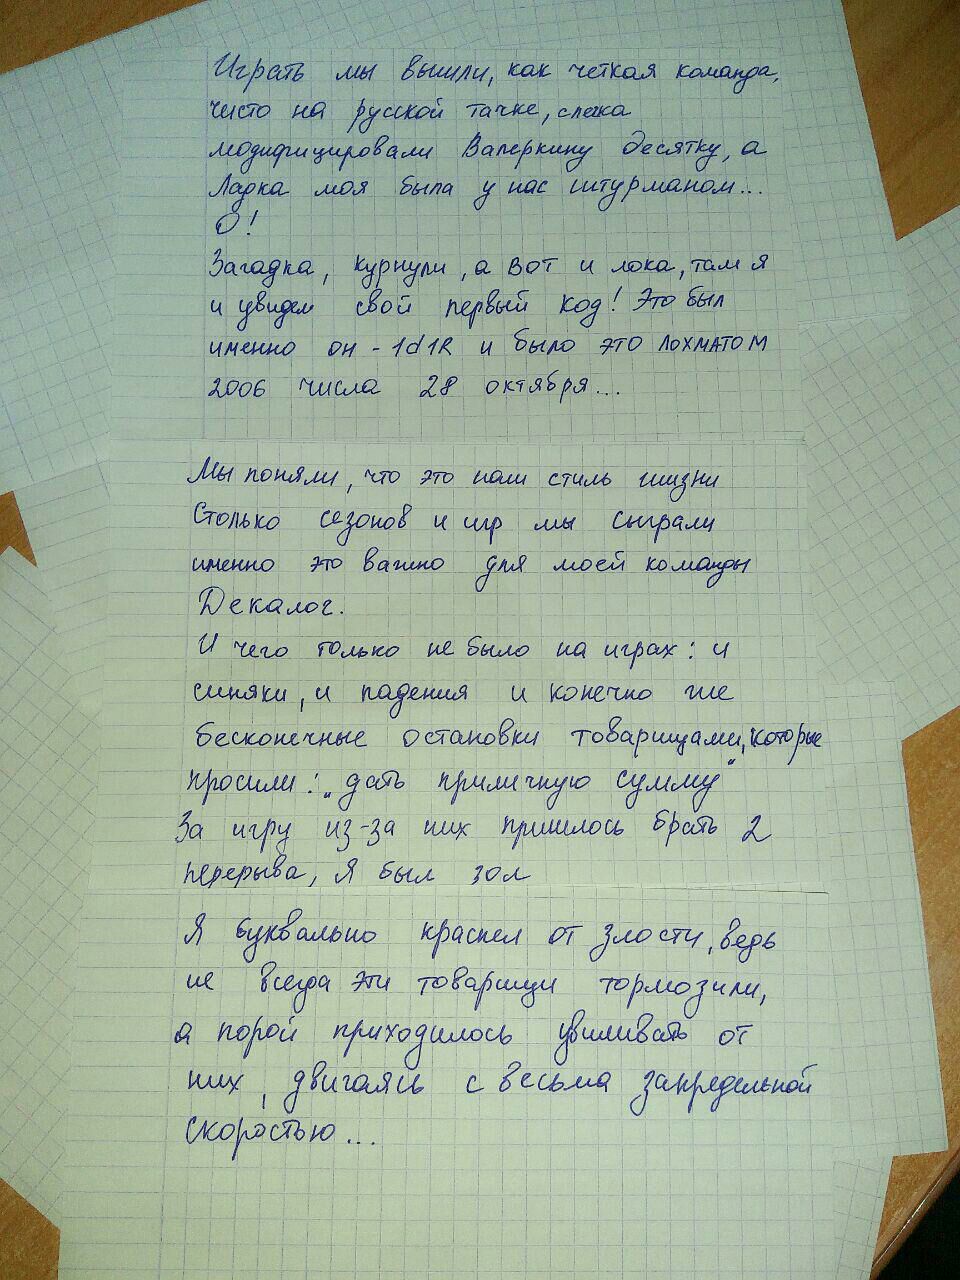 Играть мы вышли, как четкая команда,
чисто на русской тачке, слегка
модифицировали Валеркину десятку, а
Ладка моя была у нас штурманом...
О!
Загадка, курнули, а вот и лока, там я
и увидел свой первый код! Это был
именно он - 1d1R и было это ЛОХМАТОМ
2006 числа 28 октября...
Мы поняли, что это наш стиль жизни
Столько сезонов и игр мы сыграли
именно это важно для моей команды
Декалог.
И чего только не было на играх: и
синяки, и падения и конечно же
бесконечные остановки товарищами, которые
просили: „дать приличную сумму"
За игру из-за них пришлось брать 2
перерыва, я был зол
Я буквально краснел от злости, ведь
не всегда эти товарищи тормозили,
а порой приходилось увиливать от
них, двигаясь с весьма запредельной
скоростью...